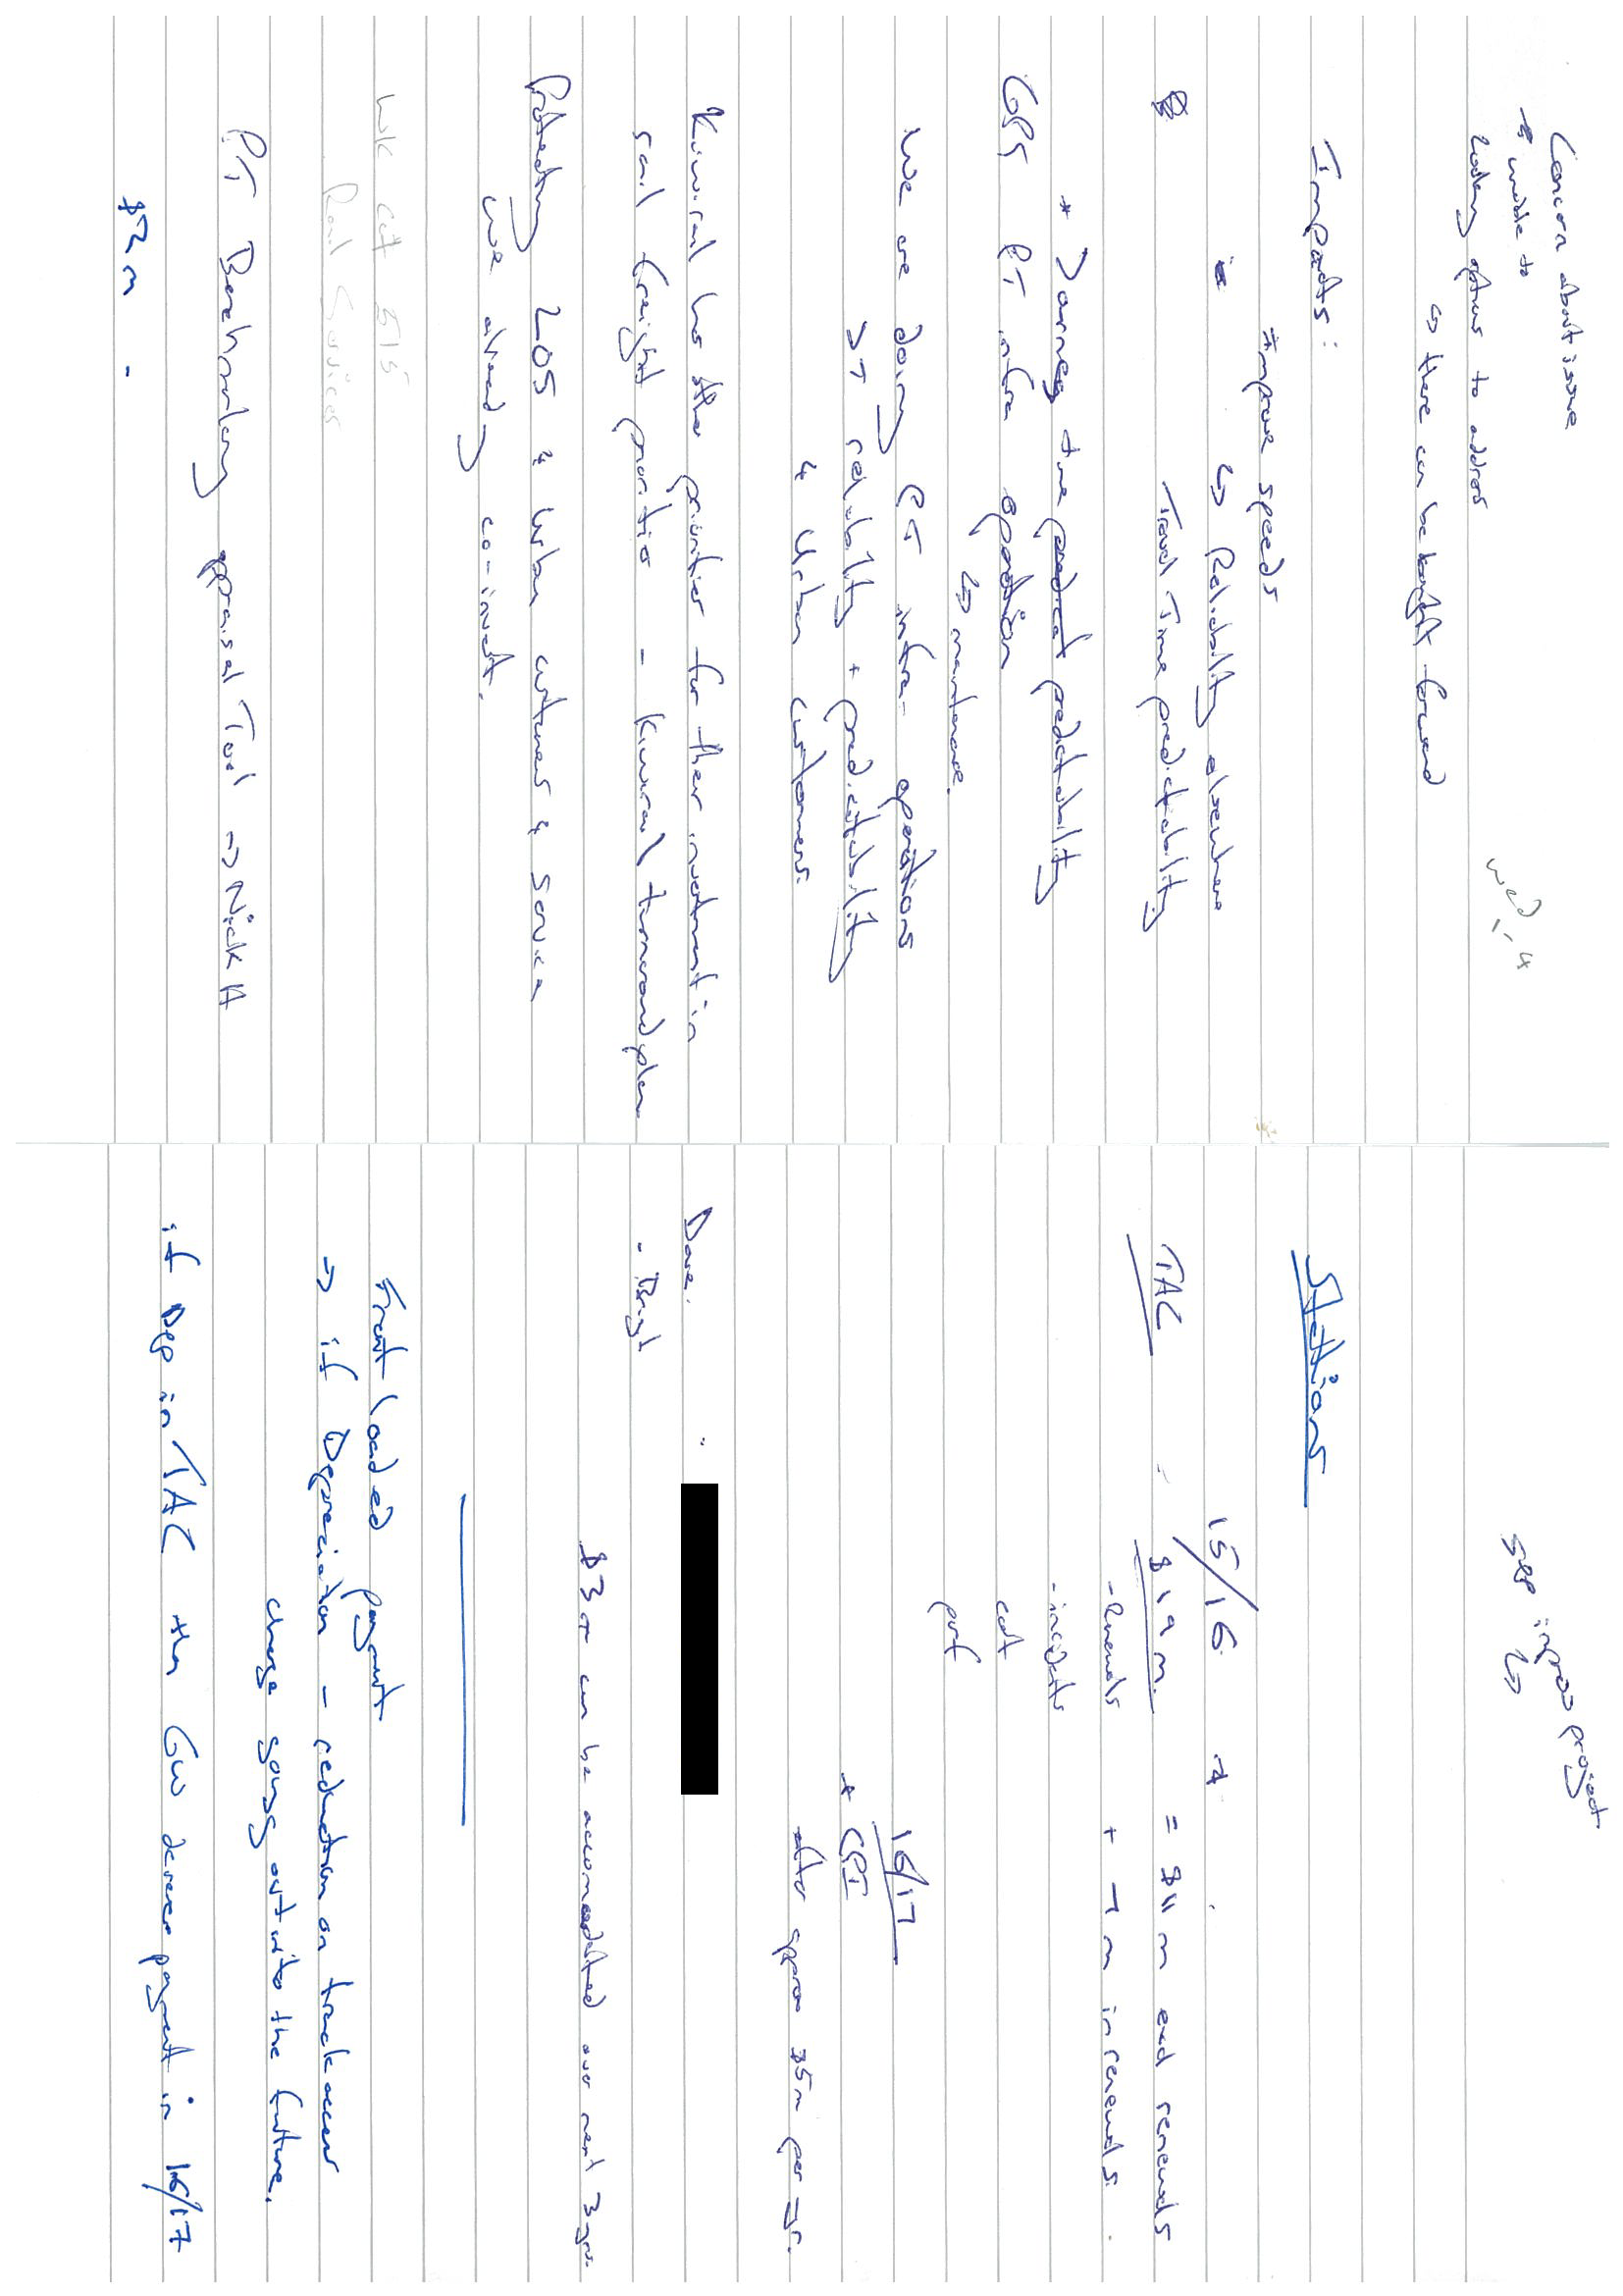 Concern about issue
unable to
looking options to address
↳ there can be benefit found
Wed, 4
Impacts:
improve speeds
↳ Reliability elsewhere
Travel Time predictability
* Journey time predictability
GPS PT infra operation
↳ maintenance.
We are doing PT infra- operations
JT reliability + predictability
4 Urban customers.
Kiwirail has other priorities for their investment in
rail freight priorities - Kiwirail turnaround plan
Protecting LOS 4 Urban customers & service
we already co-invest.
W/c cat 515
Rail Services
PT Benchmarking appraisal Tool → Nick H
$2m -
project
↳
Stations
15/16
TAC = $19m. = $11m excl renewals
- Renewals + 7m in renewals.
- incidents
cat
perf
16/17
+ CPI
after approx $5m per yr.
Dave:
$3m can be accomodated over next 3 yrs.
Front loaded payment
→ if Depreciation - reduction on track access
charge going out into the future.
if Dep in TAC then GW payment in 16/17